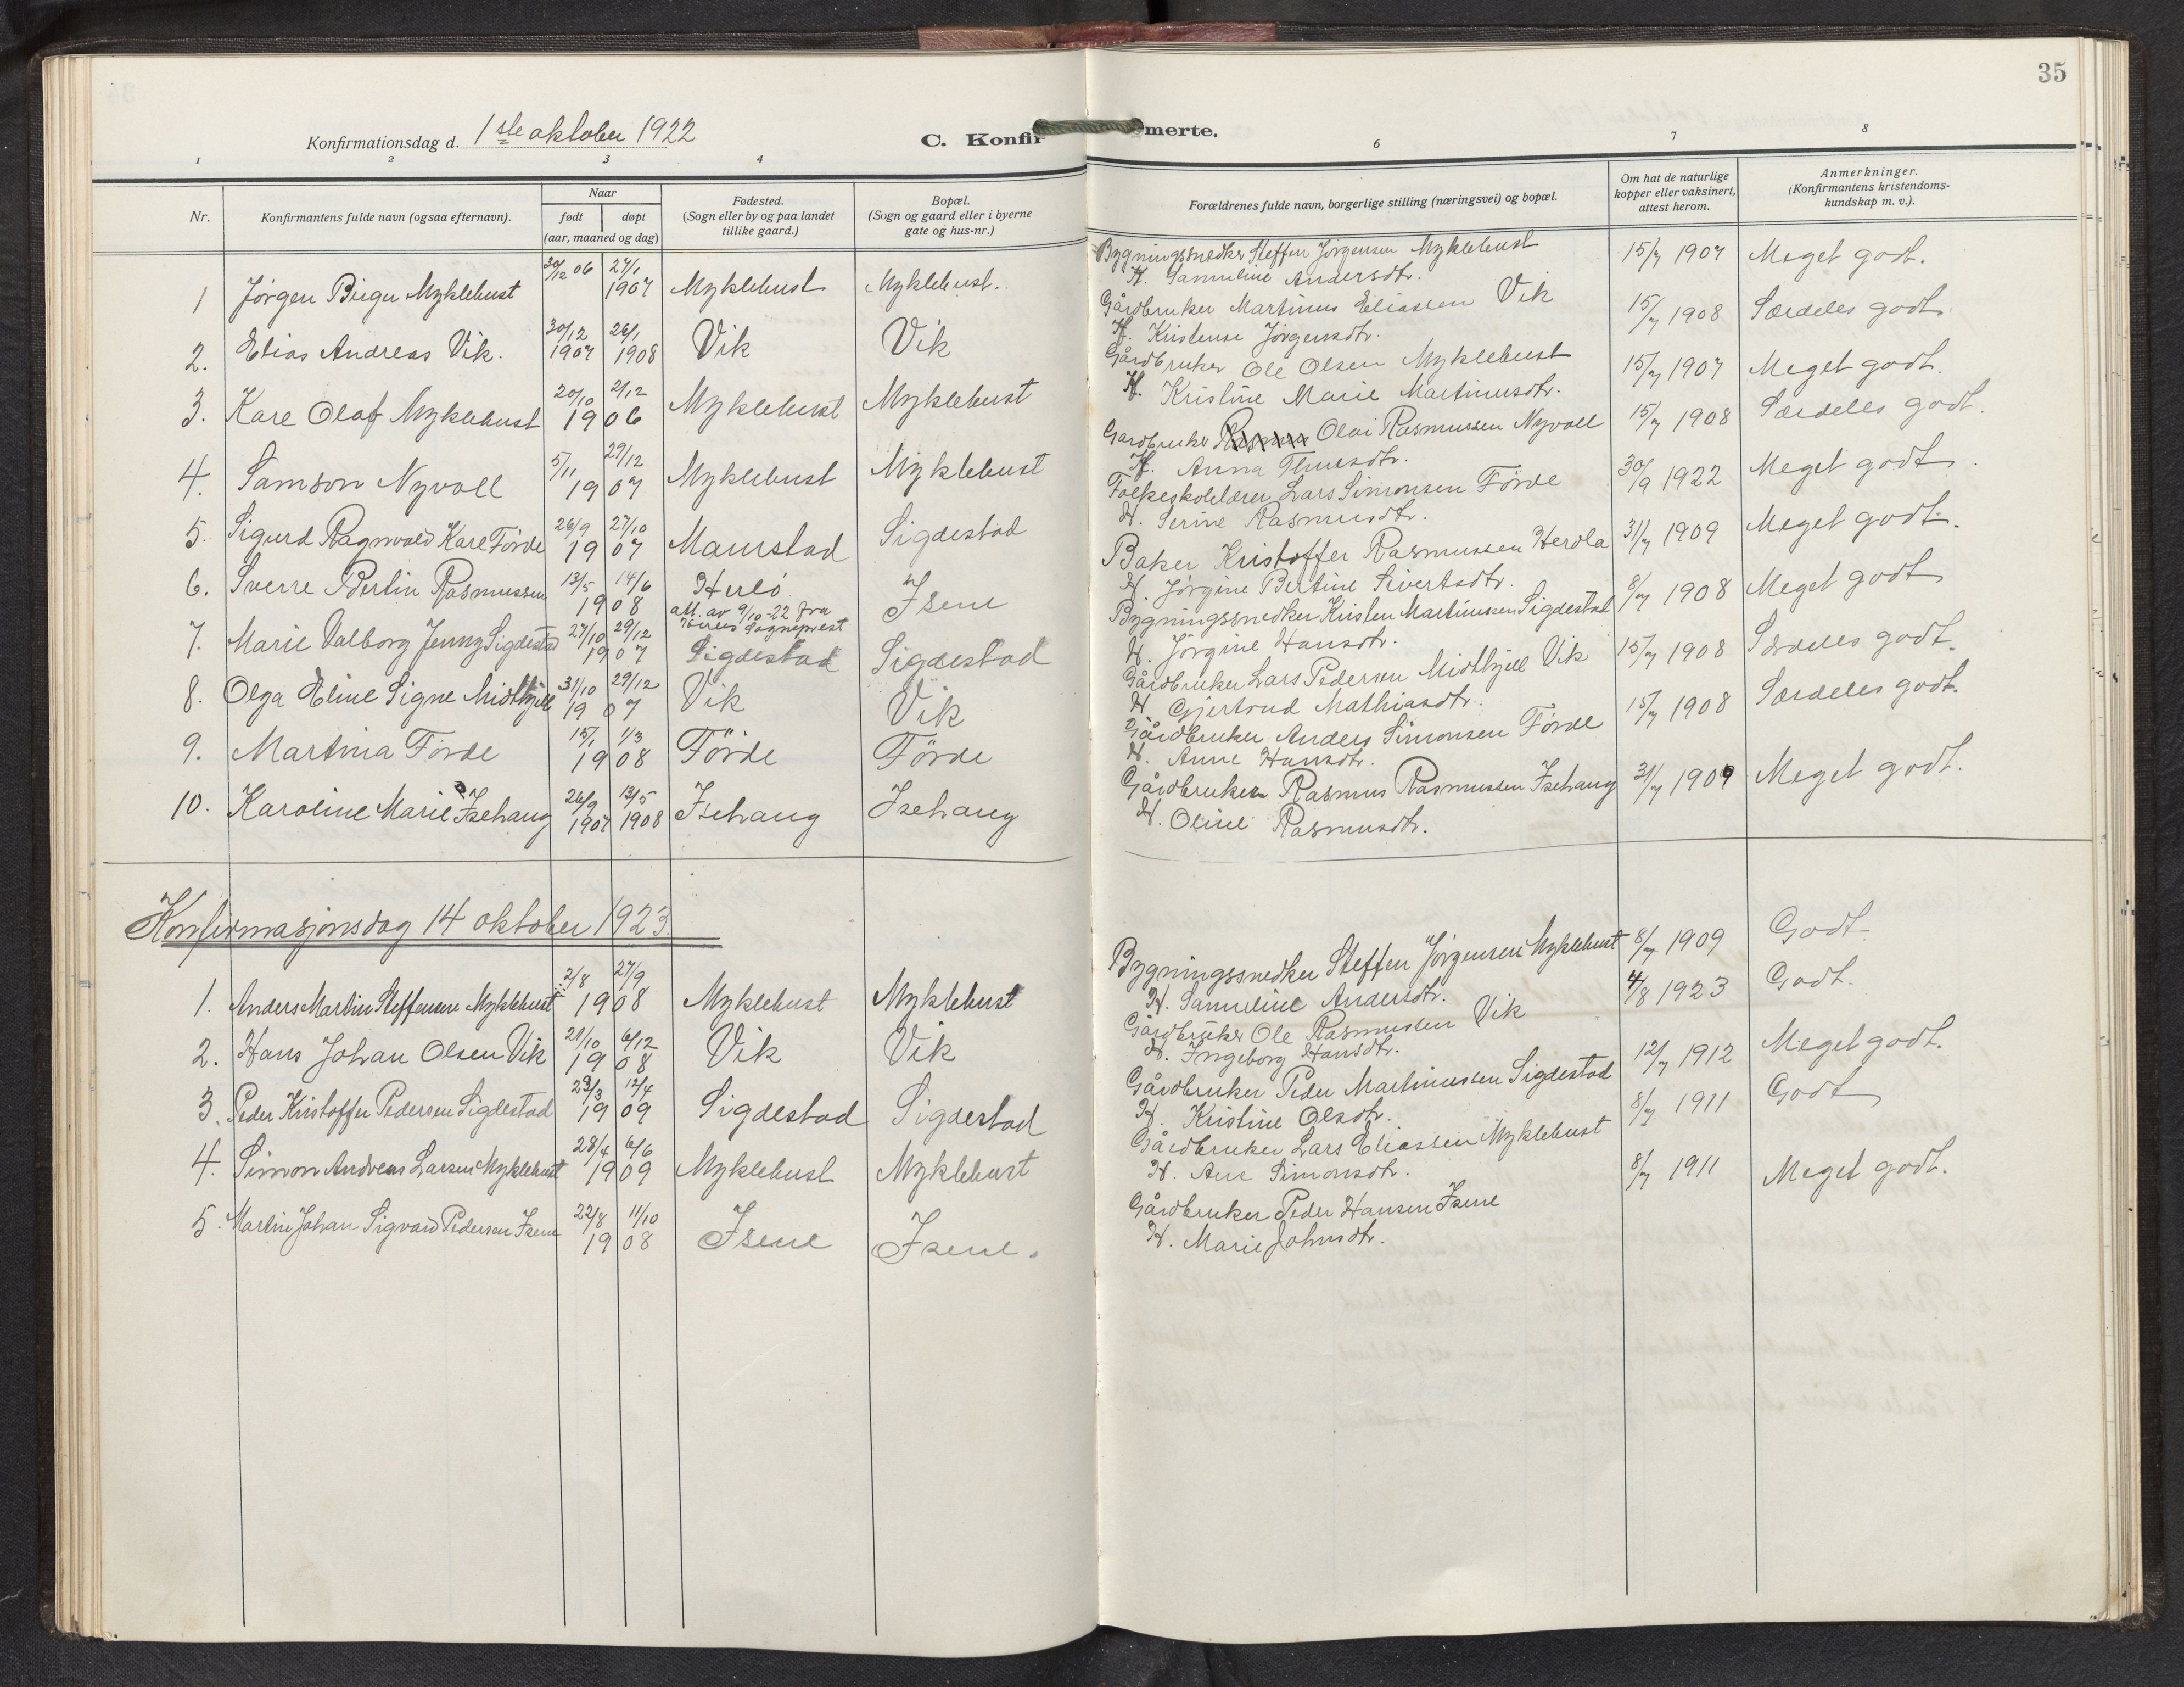 35
Konfirmationsdag d. 1ste oktober 1922
C. Konfir merte.
1 2 3 4 6 7 8
Nr.
Konfirmantens fulde navn (ogsaa efternavn).
Naar
født døpt
(aar, maaned og dag)
Fødested.
(Sogn eller by og paa landet
tillike gaard.)
Bopæl.
(Sogn og gaard eller i byerne
gate og hus-nr.)
Forældrenes fulde navn, borgerlige stilling (næringsvei) og bopæl.
Om hat de naturlige
kopper eller vaksinert,
attest herom.
Anmerkninger.
(Konfirmantens kristendoms-
kundskap m. v.).
1 Jørgen Birger Myklebust 30/12 06 27/1 1907 Myklebust Myklebust. Bygningssnedker Steffen Jørgensen Myklebust 15/7 1907 Meget godt.
H. Samuline Andersdtr.
2. Elias Andreas Vik. 30/12 1907 26/1 1908 Vik Vik Gårdbruker Martinus Eliassen Vik 15/7 1908 Særdeles godt.
H. Kristense Jörgensdtr.
3. Kare Olaf Myklebust 20/10 2/12 1906 Myklebust Myklebust Gårdbruker Ole Olsen Myklebust 15/7 1907 Meget godt.
H. Kristine Marie Martinusdtr.
4. Samson Nyvoll 5/11 29/12 1907 Myklebust Myklebust Gardbruker Olai Rasmussen Nyvoll 15/7 1908 Særdeles godt.
H. Anna Thuesdtr.
5. Sigurd Ragnvald Kare Förde 26/9 27/10 1907 Maurstad Sigdestad Folkeskolelærer Lars Simonsen Förde 30/9 1922 Meget godt.
H. Serine Rasmusdtr.
6. Sverre Bertin Rasmussen 13/5 14/6 1908 Herlö Isene Baker Kristoffer Rasmussen Herdla 31/7 1909 Meget godt.
att. av 9/10-22 fra
Herlö Sogneprest
H. Jørgine Bertine Sivertsdtr.
7. Marie Valborg Jenny Sigdestad 27/10 29/12 1907 Sigdestad Sigdestad Bygningssnedker Kristen Martinussen Sigdestad 8/7 1908 Meget godt
H. Jörgine Hansdtr.
8. Olga Eline Signe Midthjell 31/10 29/12 1907 Vik Vik Gårdbruker Lars Pedersen Midthjell Vik 15/7 1908 Særdeles godt.
H. Gjertrud Mathiasdtr.
9. Martina Förde 15/1 1/3 1908 Förde Förde Gårdbruker Anders Simonsen Förde 15/7 1908 Særdeles godt.
H. Anne Hansdtr.
10. Karoline Marie Isehaug 26/9 1907 13/5 1908 Isehaug Isehaug Gårdbruker Rasmus Rasmussen Isehaug 31/7 1909 Meget godt.
H. Oline Rasmusdtr.
Konfirmasjonsdag 14 oktober 1923
1. Anders Martin Steffensen Myklebust 2/8 27/9 1908 Myklebust Myklebust Bygningssnedker Steffen Jörgensen Myklebust 8/7 1909 Godt
H. Samuline Andersdtr.
2. Hans Johan Olsen Vik 21/10 6/12 1908 Vik Vik Gårdbruker Ole Rasmussen Vik 4/8 1923 Godt.
H. Ingeborg Hansdtr.
3. Peder Kristoffer Pedersen Sigdestad 23/3 12/4 1909 Sigdestad Sigdestad Gårdbruker Peder Martinussen Sigdestad 12/7 1912 Meget godt.
H. Kristine Olsdtr.
4. Simon Andreas Larsen Myklebust 28/4 6/6 1909 Myklebust Myklebust Gårdbruker Lars Eliassen Myklebust 8/7 1911 Godt
H. Ane Simonsdtr.
5. Martin Johan Sigvard Pedersen Isene 22/8 11/10 1908 Isene Isene. Gårdbruker Peder Hansen Isene 8/7 1911 Meget godt.
H. Marie Johnsdtr.